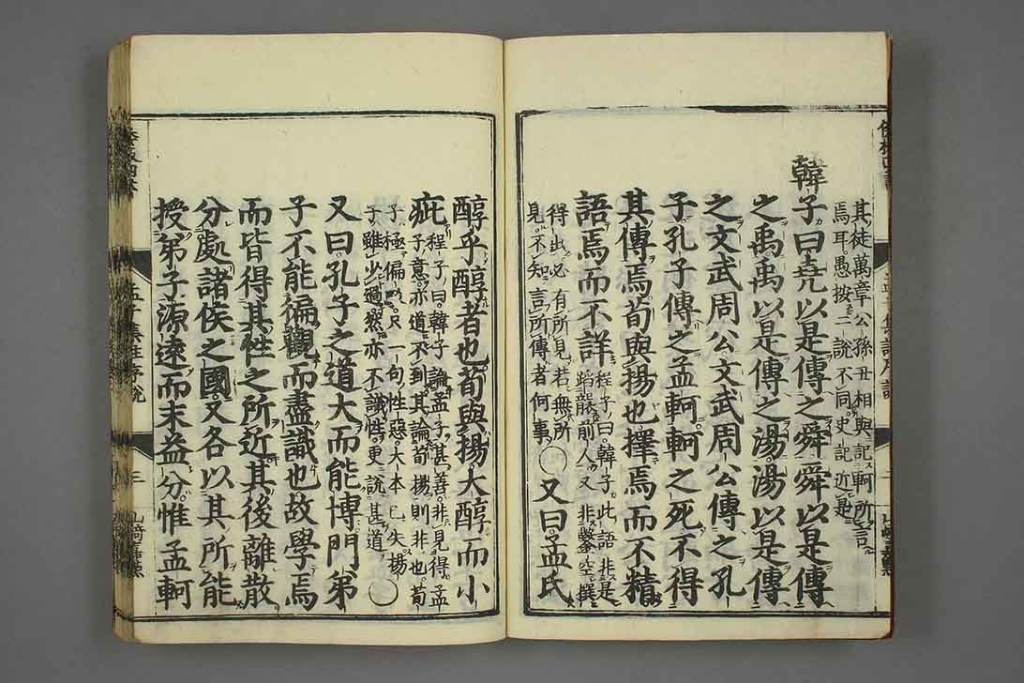 其徒萬章公孫丑相與記軻所言
焉耳愚按二說不同史記近是
韓子曰堯以是傳之舜舜以是傳
之禹禹以是傳之湯湯以是傳
之文武周公文武周公傳之孔
子孔子傳之孟軻軻之死不得
其傳焉荀與揚也擇焉而不精
語焉而不詳
程子曰韓子此語非是
蹈襲前人又非鑿空撰
得出必有所見若無所
見不知言所傳者何事
○又曰孟氏
醇乎醇者也荀與揚大醇而小
疵
程子曰韓子論孟子甚善非見得孟
子意亦道不到其論荀揚則非也荀
子極偏駁只一句性惡大本已失揚
子雖少過然亦不識性更說甚道
○
又曰孔子之道大而能博門弟
子不能徧觀而盡識也故學焉
而皆得其性之所近其後離散
分處諸侯之國又各以其所能
授弟子源遠而末益分惟孟軻
孟子集註序說
三